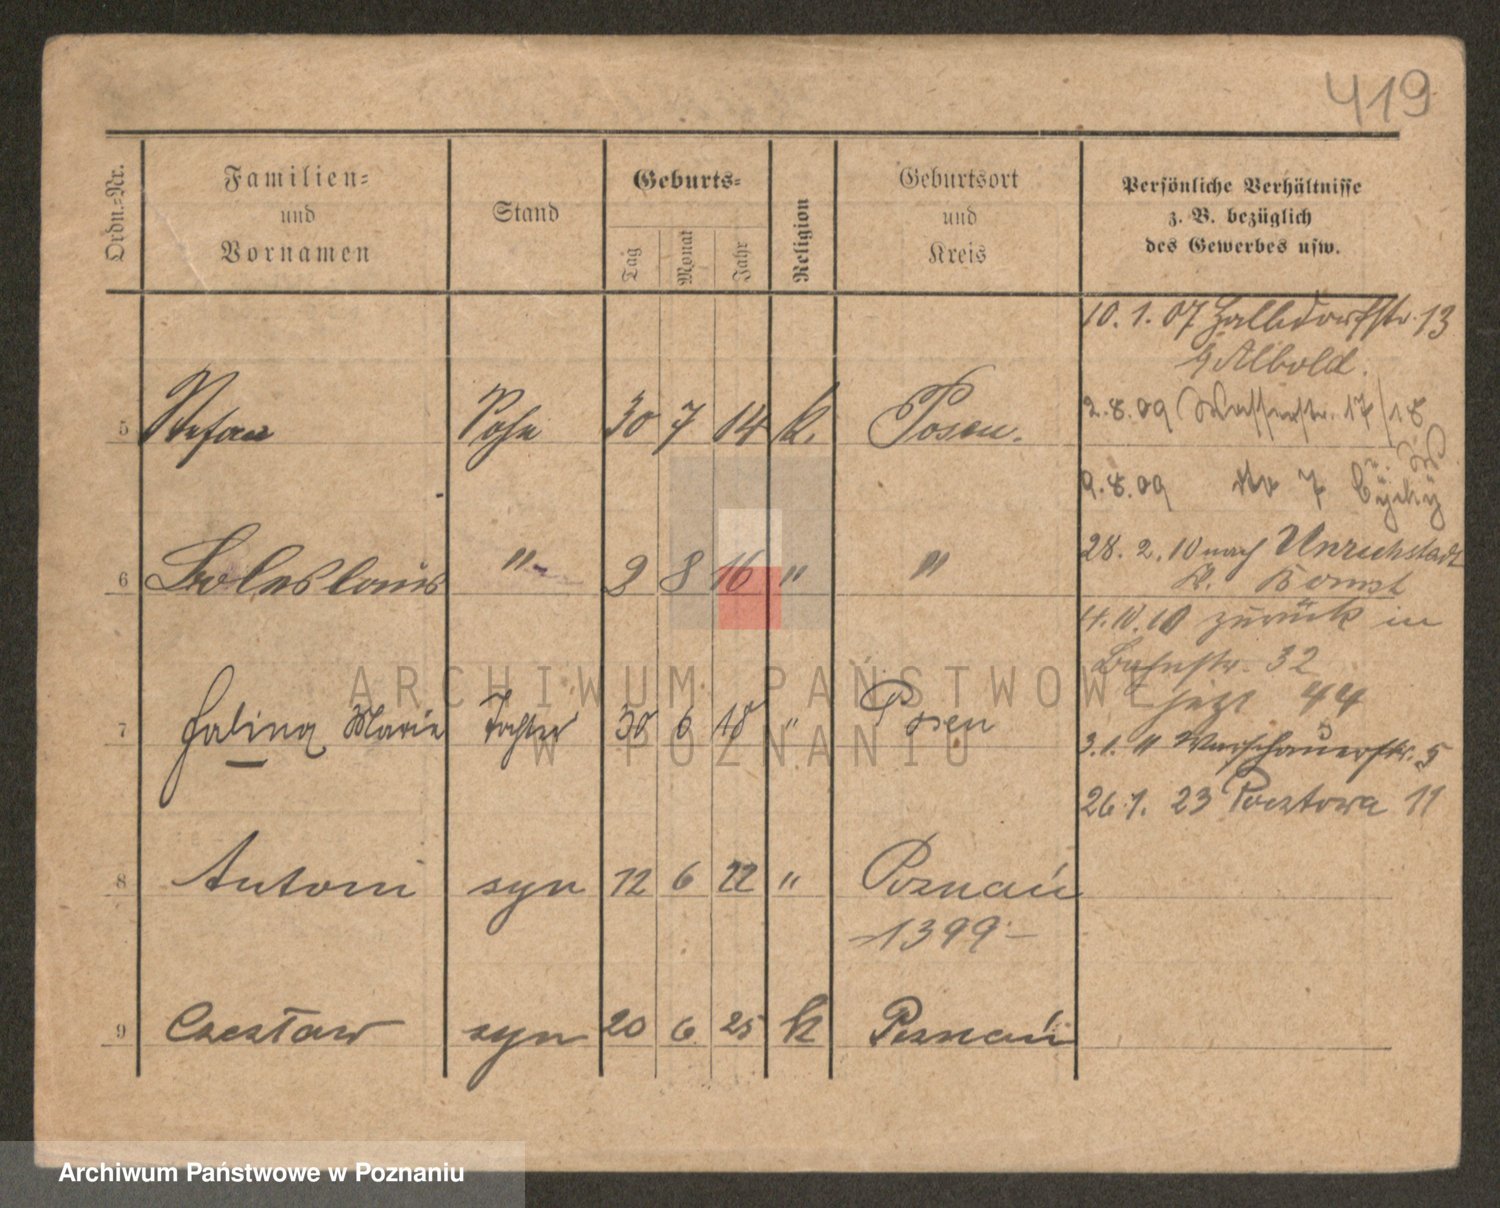 419
Ordn.-Nr.
Familien-
und
Vornamen
Stand
Geburts-
Tag
Monat
Jahr
Religion
Geburtsort
und
Kreis
Persönliche Verhältnisse
z. B. bezüglich
des Gewerbes usw.
10. 1. 07 Halldorfstr. 13
b/Albold.
5 Stefan Sohn 30 7 14 k. Posen.
2.8.09 Wasserstr. 17/18
9.8.09 No 7
6 Boleslaus " 2 8 16 " "
28. 2. 10 nach Unruhstadt
Kr. Bomst
4.10.10 zurück in
Bahnstr. 32
jetzt 44
7 Halina Marie Tochter 30 6 18 " Posen
3.1. 11 Warschauerstr. 5
26.1. 23 Pocztowa 11
8 Antoni syn 12 6 22 " Poznań
-1399-
9 Czesław syn 20 6 25 k Poznań
ARCHIWUM PAŃSTWOWE
W POZNANIU
Archiwum Państwowe w Poznaniu